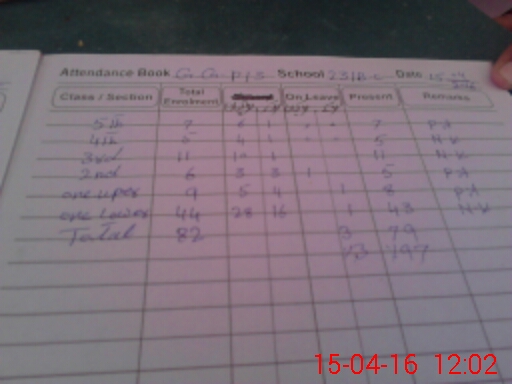 Attendance Book G. G. P/S School 231B c Date 15-4
Class / Section Total Enrolment On Leave Present Remarks
5th 7 6 1 - - 7 P.A
4th 5 4 1 - - 5 N.K
3rd 11 10 1 11 N.K
2nd 6 3 3 1 5 P.A
one uper 9 5 4 1 8 P.A
one Lower 44 28 16 1 43 N.K
Total 82 3 79
15-04-16 12:02